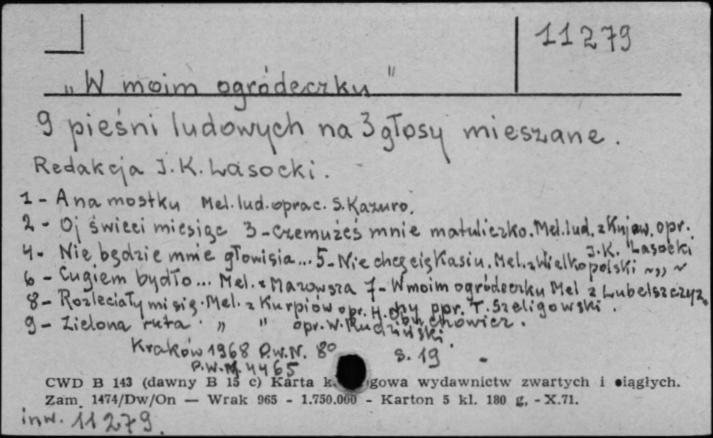 11279
„W moim ogródeczku"
9 pieśni ludowych na 3 głosy mieszane.
Redakcja J. K. Lasocki.
1 - A na mostku Mel. lud. oprac. S. Kazuro.
2 - Oj świeci miesiąc 3 - Czemużeś mnie matuliczko. Mel. lud. z Kujaw. opr. J. K. Lasocki
4 - Nie będzie mnie głowisia... 5 - Nie chcę cię Kasiu. Mel. z Wielkopolski ~„~
6 - Cugiem bydło... Mel. z Mazowsza 7 - W moim ogródeczku Mel z Lubelszczyz.
8 - Rozleciały mi się. Mel. z Kurpiów opr. opr. T. Szeligowski.
9 - Zielona ruta. „ " opr. W. Rudziński.
Kraków 1968 P.W.N. 8° s. 19 -
P.W.M. 4465
CWD B 143 (dawny B 15 c) Karta k gowa wydawnictw zwartych i ciągłych.
Zam. 1474/Dw/On — Wrak 965 - 1.750.000 - Karton 5 kl. 180 g, - X.71.
inw. 11279.